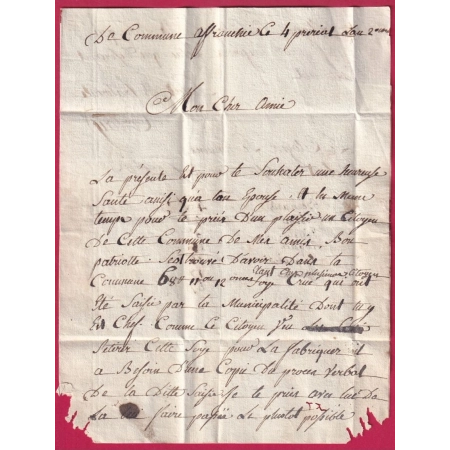 De Commune affranchie le 4 prerial Lan 2eme
Mon Cher amie
La présente Est pour te Souhaiter une heureuse
Santé ainsi qua ton Eponse, Et la Meme
temps pour te prier Dun plaisir un Citoyen
De Cette Commune De Mes amis, Bon
patriotte Sestrouve Davoir Dans la
Commune 11 ou 12 onces Soye Crue qui ont
Eté Saisie par la Municipalité Dont tu y
Est Chef. Comme Ce Citoyen
retirer Cette Soye pour La fabriquer il
a Besoin D'une Copie Du proces verbal
De la Ditte Saisie Je te prie avec lui De
La faire passée Le plustot possible